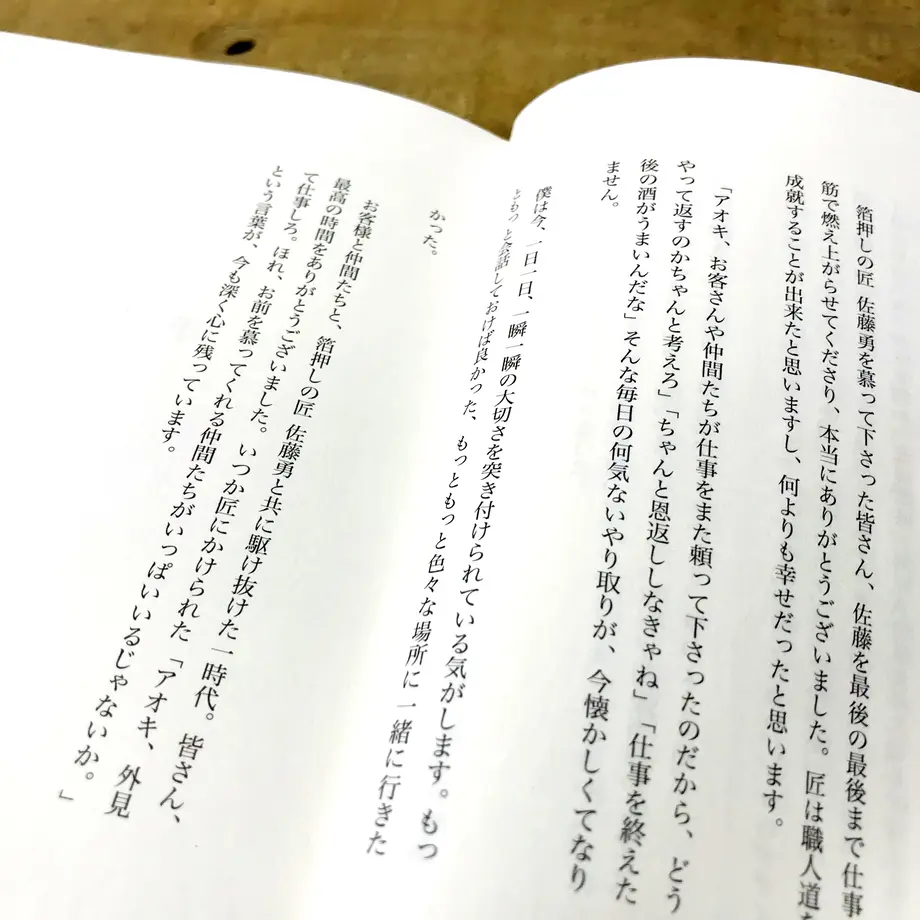 箔押しの匠 佐藤勇を慕って下さった皆さん、佐藤を最後の最後まで仕事
筋で燃え上がらせてくださり、本当にありがとうございました。匠は職人道を
成就することが出来たと思いますし、何よりも幸せだったと思います。
「アオキ、お客さんや仲間たちが仕事をまた頼って下さったのだから、どう
やって返すのかちゃんと考えろ」「ちゃんと恩返ししなきゃね」「仕事を終えた
後の酒がうまいんだな」そんな毎日の何気ないやり取りが、今懐かしくてなり
ません。
僕は今、一日一日、一瞬一瞬の大切さを突き付けられている気がします。もっ
ともっと会話しておけば良かった、もっともっと色々な場所に一緒に行きた
かった。
お客様と仲間たちと、箔押しの匠 佐藤勇と共に駆け抜けた一時代。皆さん、
最高の時間をありがとうございました。いつか匠にかけられた「アオキ、外見
て仕事しろ。ほれ、お前を慕ってくれる仲間たちがいっぱいいるじゃないか。」
という言葉が、今も深く心に残っています。